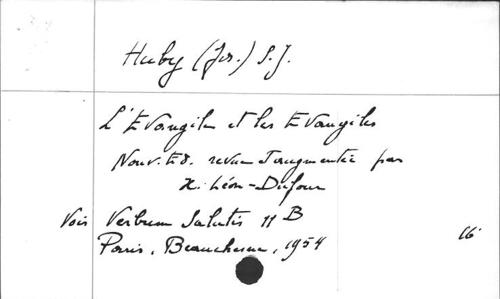 Huby (Jos.) S.J.
L'Evangile et les Evangiles
Nouv. Ed. revue et augmentée par
X. Léon-Dufour
Voir Verbum Salutis 11 B
Paris, Beauchesne, 1954
16